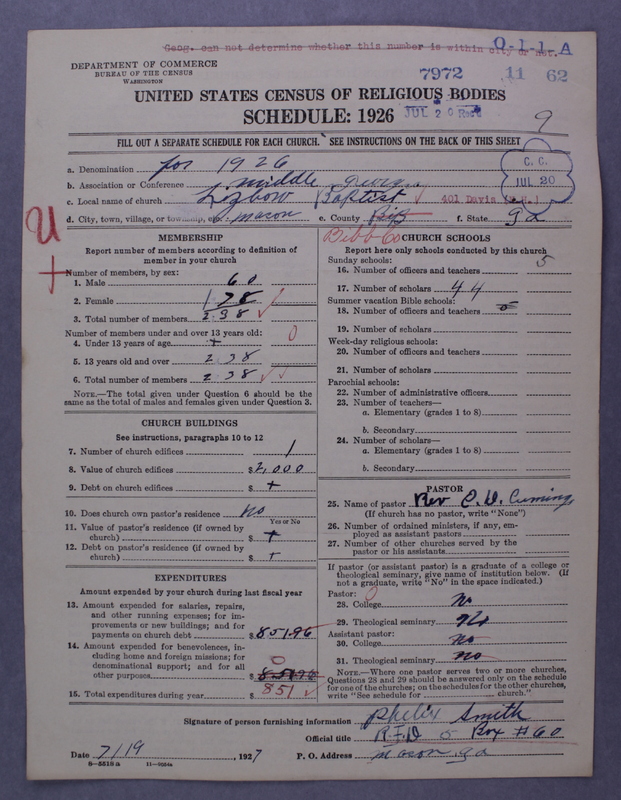 Geog. can not determine whether this number is within city or not.
O-1-1-A
DEPARTMENT OF COMMERCE
BUREAU OF THE CENSUS
WASHINGTON
7972 11 62
UNITED STATES CENSUS OF RELIGIOUS BODIES
JUL 20 Recd
SCHEDULE: 1926
9
FILL OUT A SEPARATE SCHEDULE FOR EACH CHURCH. SEE INSTRUCTIONS ON THE BACK OF THIS SHEET
C. C.
JUL 20
a. Denomination for 1926
b. Association or Conference middle georgia
c. Local name of church Lizbow Baptist 401 Davis
d. City, town, village, or township, etc. macon e. County f. State ga
Bibb Co
MEMBERSHIP
Report number of members according to definition of
member in your church
Number of members, by sex:
1. Male 60
2. Female 178
3. Total number of members 238
Number of members under and over 13 years old:
0
4. Under 13 years of age +
5. 13 years old and over 238
6. Total number of members 238
NOTE.—The total given under Question 6 should be
same as the total of males and females given under Question 3.
CHURCH BUILDINGS
See instructions, paragraphs 10 to 12
7. Number of church edifices 1
8. Value of church edifices $2,000
9. Debt on church edifices $ +
10. Does church own pastor's residence? No
Yes or No
11. Value of pastor's residence (if owned by
church) $ +
12. Debt on pastor's residence (if owned by
church) $ +
EXPENDITURES
Amount expended by your church during last fiscal year
13. Amount expended for salaries, repairs,
and other running expenses; for im-
provements or new buildings; and for
payments on church debt $ 851.96
14. Amount expended for benevolences, in-
cluding home and foreign missions; for
denominational support; and for all
0
other purposes $ 851.96
15. Total expenditures during year $ 851
CHURCH SCHOOLS
Report here only schools conducted by this church
Sunday schools:
16. Number of officers and teachers 5
17. Number of scholars 44
Summer vacation Bible schools:
18. Number of officers and teachers 5
19. Number of scholars
Week-day religious schools:
20. Number of officers and teachers
21. Number of scholars
Parochial schools:
22. Number of administrative officers
23. Number of teachers—
a. Elementary (grades 1 to 8)
b. Secondary
24. Number of scholars—
a. Elementary (grades 1 to 8)
b. Secondary
PASTOR
25. Name of pastor Rev C. D. Cumings
(If church has no pastor, write "None")
26. Number of ordained ministers, if any, em-
ployed as assistant pastors
27. Number of other churches served by the
pastor or his assistants
If pastor (or assistant pastor) is a graduate of a college or
theological seminary, give name of institution below. (If
not a graduate, write "No" in the space indicated.)
Pastor:
28. College No
29. Theological seminary No
Assistant pastor:
30. College No
31. Theological seminary no
NOTE.—Where one pastor serves two or more churches,
Questions 28 and 29 should be answered only on the schedule
for one of the churches; on the schedules for the other churches,
write "See schedule for church."
Signature of person furnishing information Phelix Smith
Official title R.F.D 5 Box #60
Date 7/19, 1927 P. O. Address macon ga
8—5518a 11—9064a